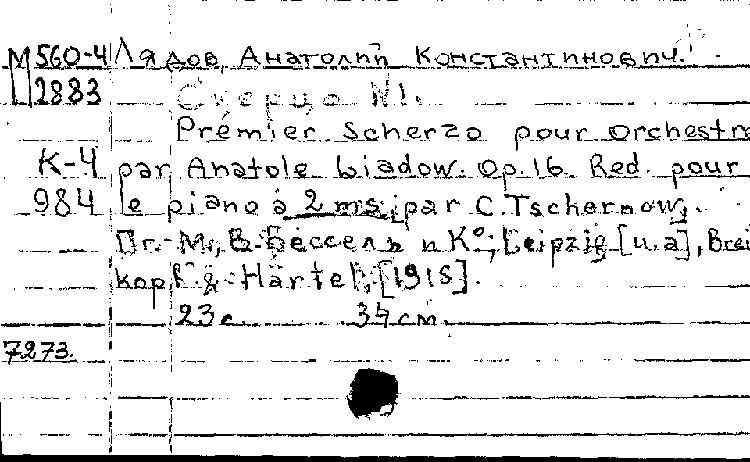 М 560-4 Лядов, Анатолий Константинович.
2883 Скерцо №1.
Premier Scherzo pour orchestre
К-4 par Anatole Liadow. Op.16. Red. pour
984 le piano à 2 ms. par C. Tschernow.
Пг.-М., В. Бессель и К°; Leipzig [u.a], Breit
kopf & Härtel, [1915].
23 с. 34 см.
7273.